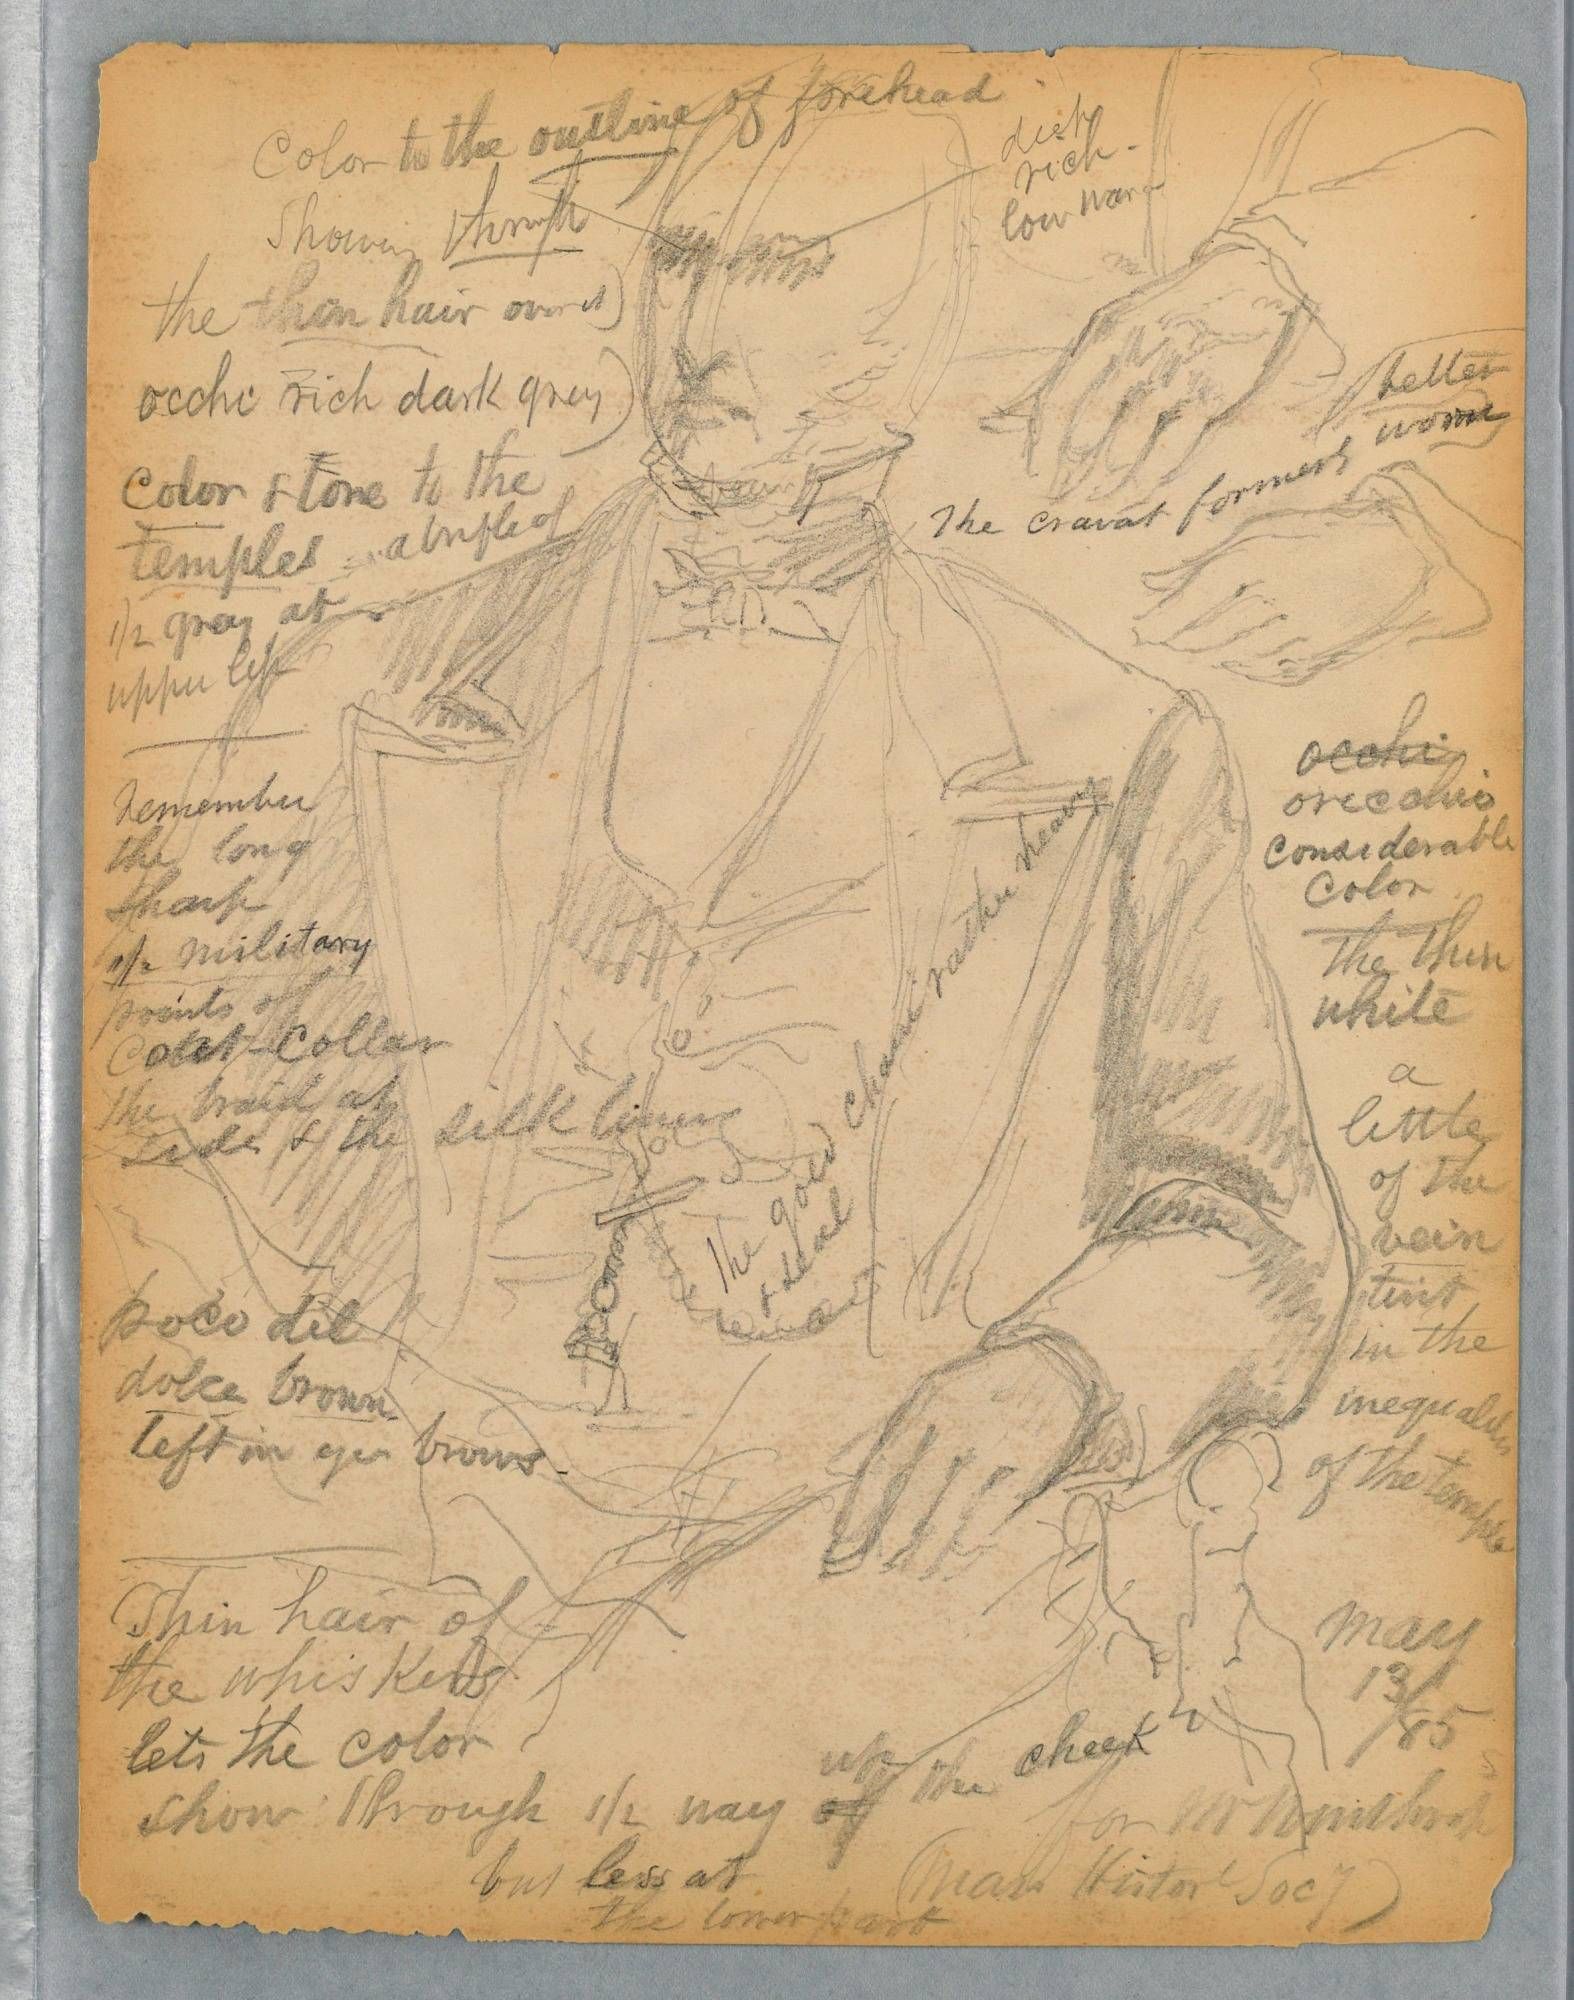 Color to the outline of forehead
Showing through
the thin hair over it)
occhi rich dark grey)
Color & tone to the
temples a trifle of
1/2 gray at
upper left
remember
the long
sharp
1/2 military
points of
Coat-Collar
the braid at
side & the silk lining
poco del
dolce brown
left in eye brows.
Thin hair of
the whiskers
lets the color
show through 1/2 way up the cheek
but less at
the lower part
rich
low warm
better
worn
The cravat formerly
The gold chain rather heavy
& seal
occhi
orecchio
considerable
color
the thin
white
a
little
of the
vein
tint
in the
inequalities
of the temple
May
13/85
for Mr Winthrop
(Mass Histor'l Soc'y)